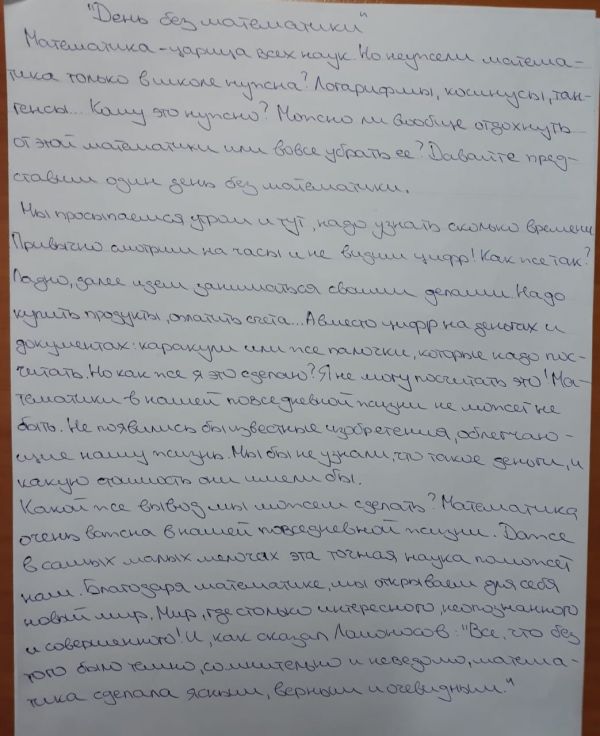 "День без математики"
Математика - царица всех наук. Но неужели матема-
тика только в школе нужна? Логарифмы, косинусы, тан-
генсы... Кому это нужно? Можно ли вообще отдохнуть
от этой математики или вовсе убрать ее? Давайте пред-
ставим один день без математики.
Мы просыпаемся утром и тут, надо узнать сколько времени
Привычно смотрим на часы и не видим цифр! Как же так?
Ладно, далее идем заниматься своими делами. Надо
купить продукты, оплатить счета... А вместо цифр на деньгах и
документах: каракули или же палочки, которые надо пос-
читать. Но как же я это сделаю? Я не могу посчитать это! Ма-
тематики - в нашей повседневной жизни не может не
быть. Не появились бы известные изобретения, облегчаю-
щие нашу жизнь. Мы бы не узнали, что такое деньги, и
какую стоимость они имели бы.
Какой же вывод мы можем сделать? Математика
очень важна в нашей повседневной жизни. Даже
в самых малых мелочах эта точная наука поможет
нам. Благодаря математике, мы открываем для себя
новый мир. Мир, где столько интересного, неопознанного
и совершенного! И, как сказал Ломоносов: "Все, что без
того было темно, сомнительно и неведомо, матема-
тика сделала ясным, верным и очевидным."